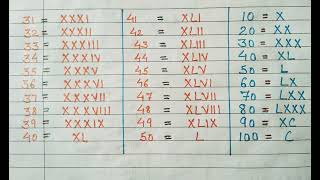 31 = XXXI
32 = XXXII
33 = XXXIII
34 = XXXIV
35 = XXXV
36 = XXXVI
37 = XXXVII
38 = XXXVIII
39 = XXXIX
40 = XL
41 = XLI
42 = XLII
43 = XLIII
44 = XLIV
45 = XLV
46 = XLVI
47 = XLVII
48 = XLVIII
49 = XLIX
50 = L
10 = X
20 = XX
30 = XXX
40 = XL
50 = L
60 = LX
70 = LXX
80 = LXXX
90 = XC
100 = C